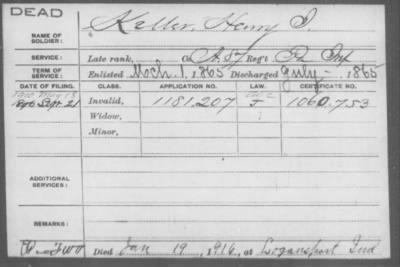 DEAD
NAME OF SOLDIER: Keller, Henry I
SERVICE: Late rank, Co A. 57 Reg't Pa Inf
TERM OF SERVICE: Enlisted Mch. 1, 1865 Discharged July – , 1865
DATE OF FILING. CLASS. APPLICATION NO. LAW. CERTIFICATE NO.
Sept. 21 Invalid, 1181.207 J 1060.753
Widow,
Minor,
ADDITIONAL SERVICES:
REMARKS:
Died Jan 19, 1916, at Logansport Ind